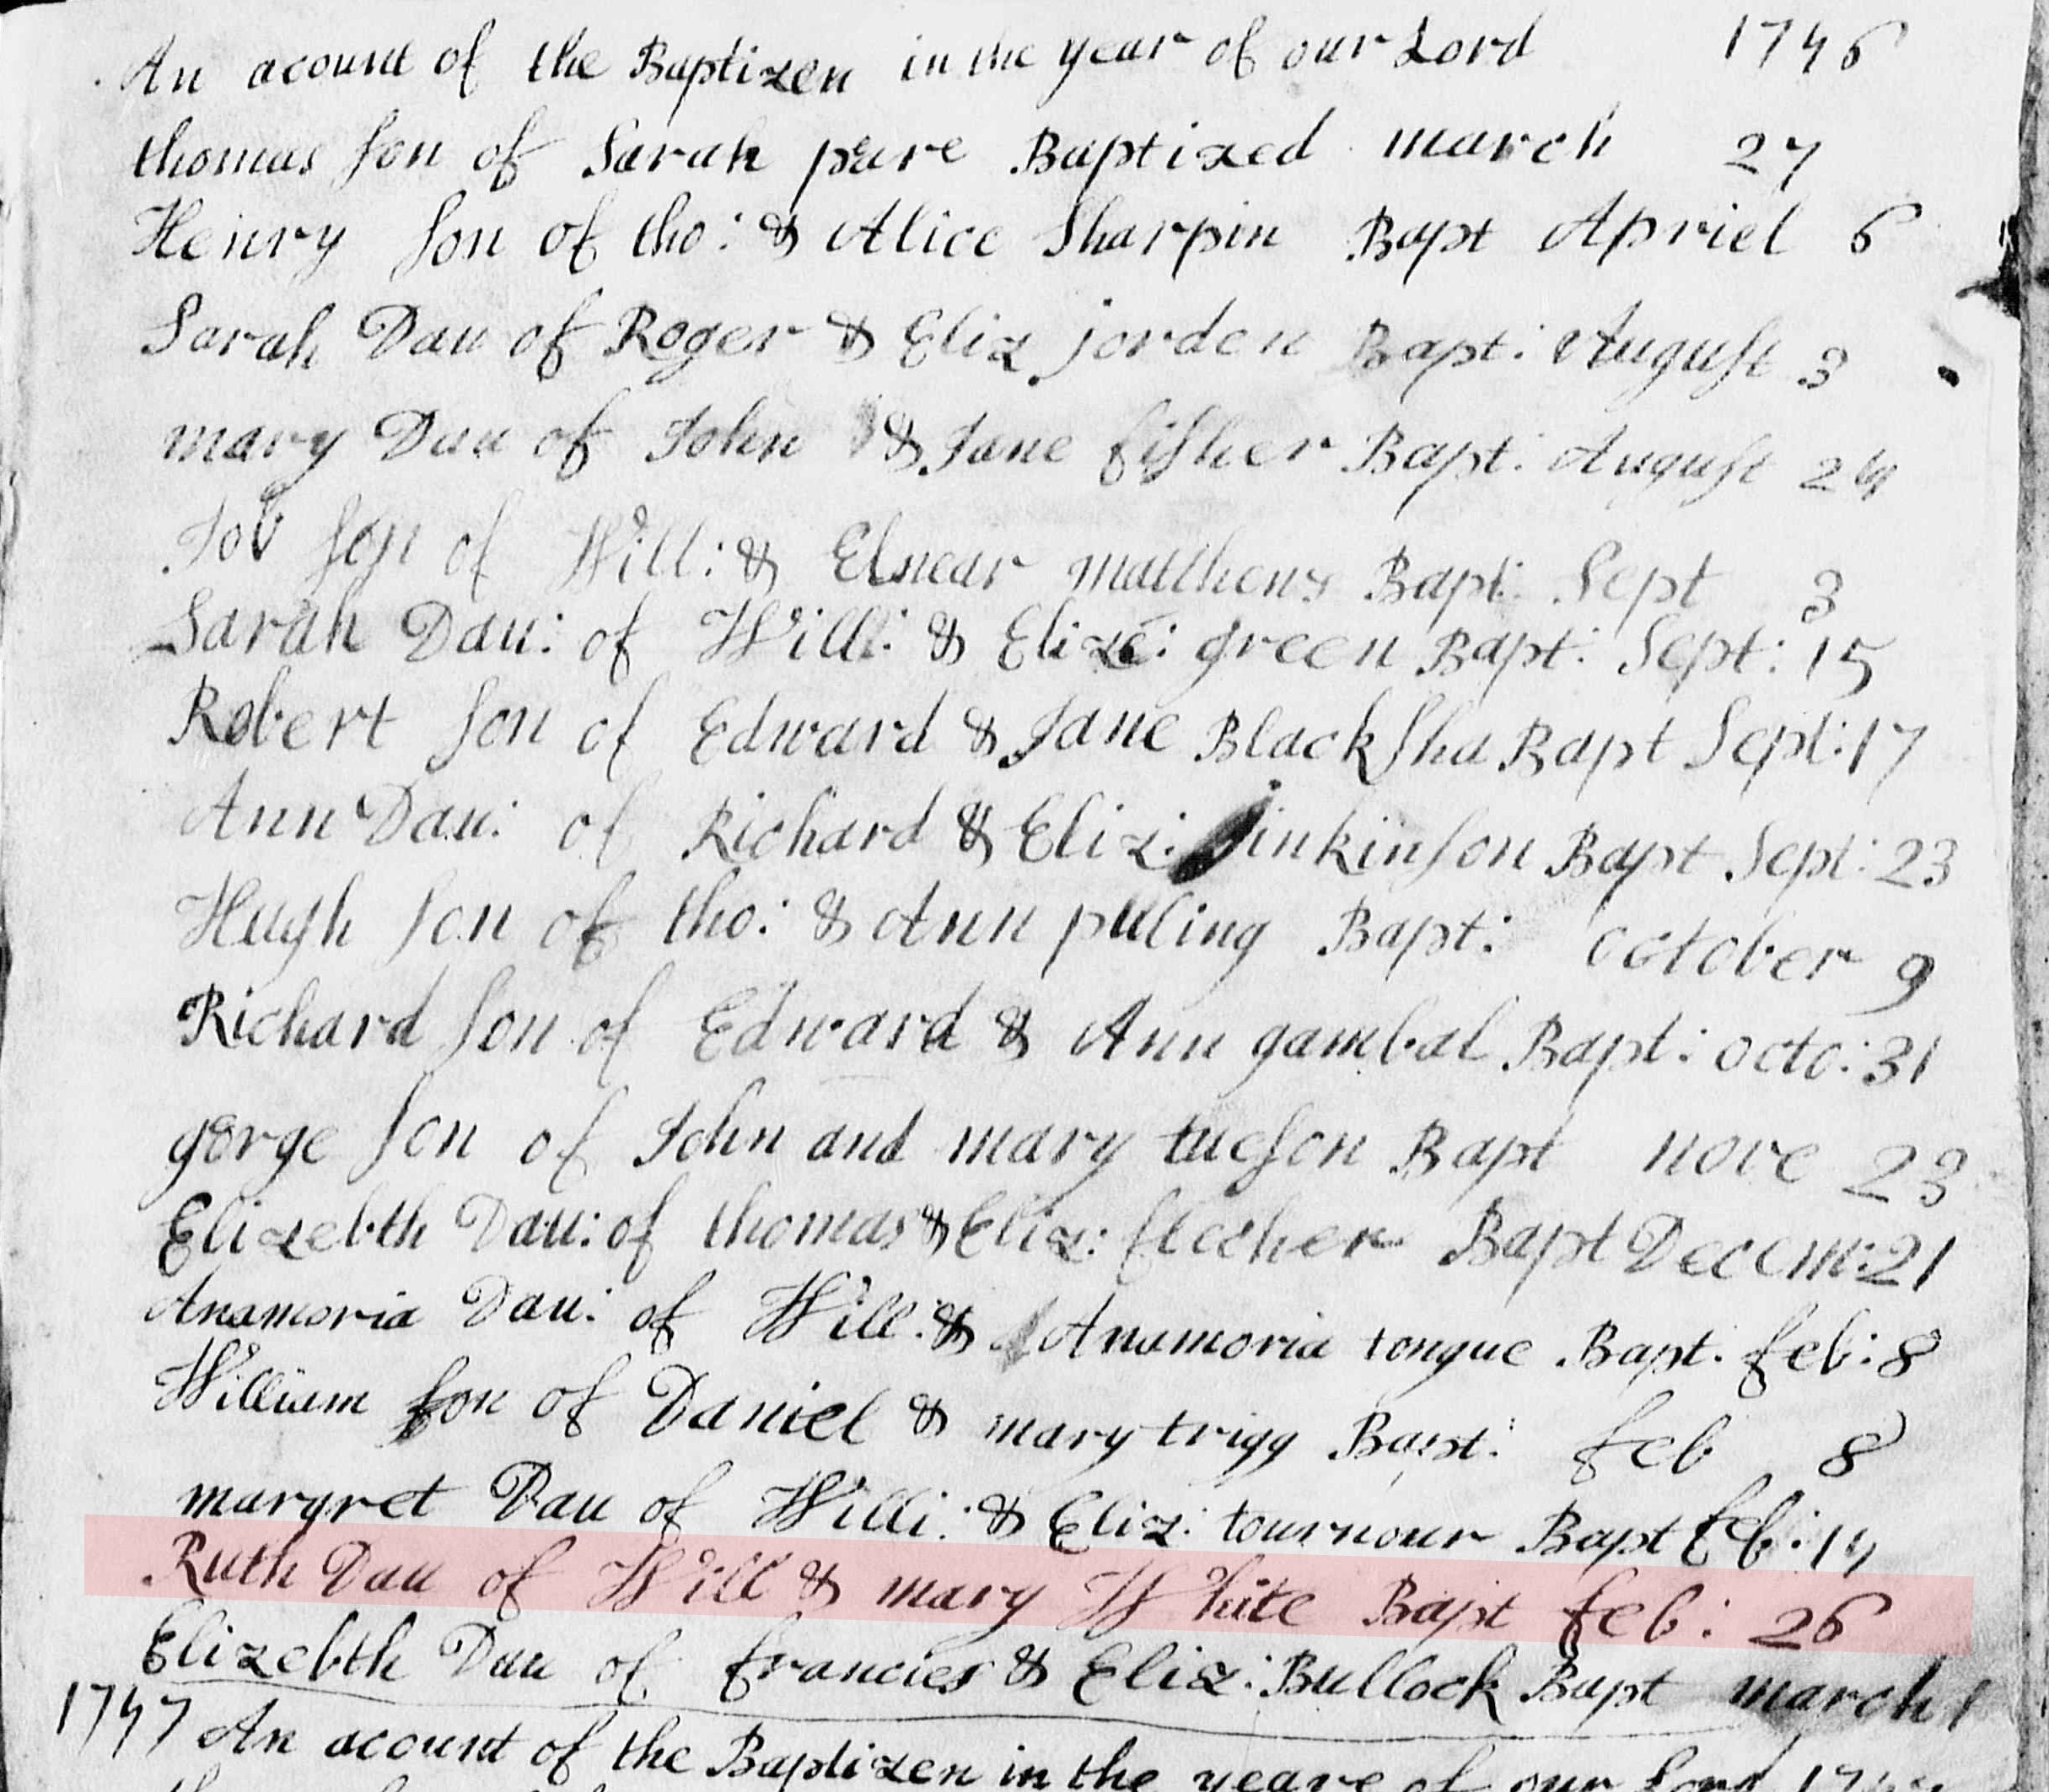 An acount of the Baptizen in the year of our Lord 1746
thomas son of Sarah peare Baptized march 27
Henry son of tho: & Alice Sharpin Bapt Apriel 6
Sarah Dau of Roger & Eliz jorden Bapt: August 3
mary Dau of John & Jane fisher Bapt: August 24
Job son of Will: & Elnear matthews Bapt: Sept 3
Sarah Dau: of Will: & Elize: green Bapt: Sept: 15
Robert son of Edward & Jane Blacksha Bapt Sept: 17
Ann Dau: of Richard & Eliz: jinkinson Bapt Sept: 23
Hugh son of tho: & Ann pilling Bapt: october 9
Richard son of Edward & Ann gambal Bapt: octo: 31
gorge son of John and mary tueson Bapt nove 23
Elizebth Dau: of thomas & Eliz: flecher Bapt Decem: 21
Anamoria Dau: of Will: & Anamoria tongue Bapt. feb: 8
William son of Daniel & mary trigg Bapt: feb 8
margret Dau of Willi: & Eliz: tournour Bapt feb: 14
Ruth Dau of Will & mary White Bapt feb: 26
Elizebth Dau of francies & Eliz: Bullock Bapt march 1
1747 An acount of the Baptizen in the yeare of our Lord